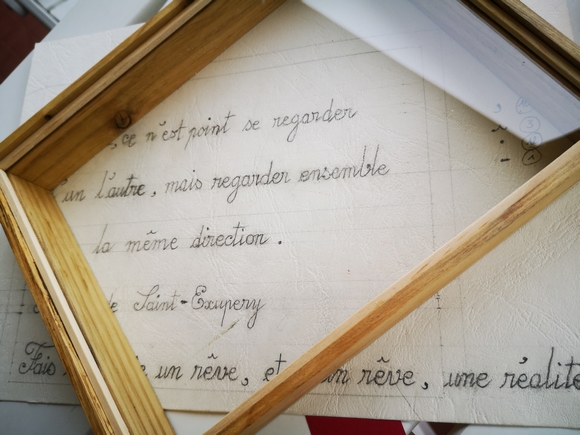 , ce n'est point se regarder
l'autre, mais regarder ensemble
la même direction.
de Saint-Exupery
Fais un rêve, et rêve, une réalité